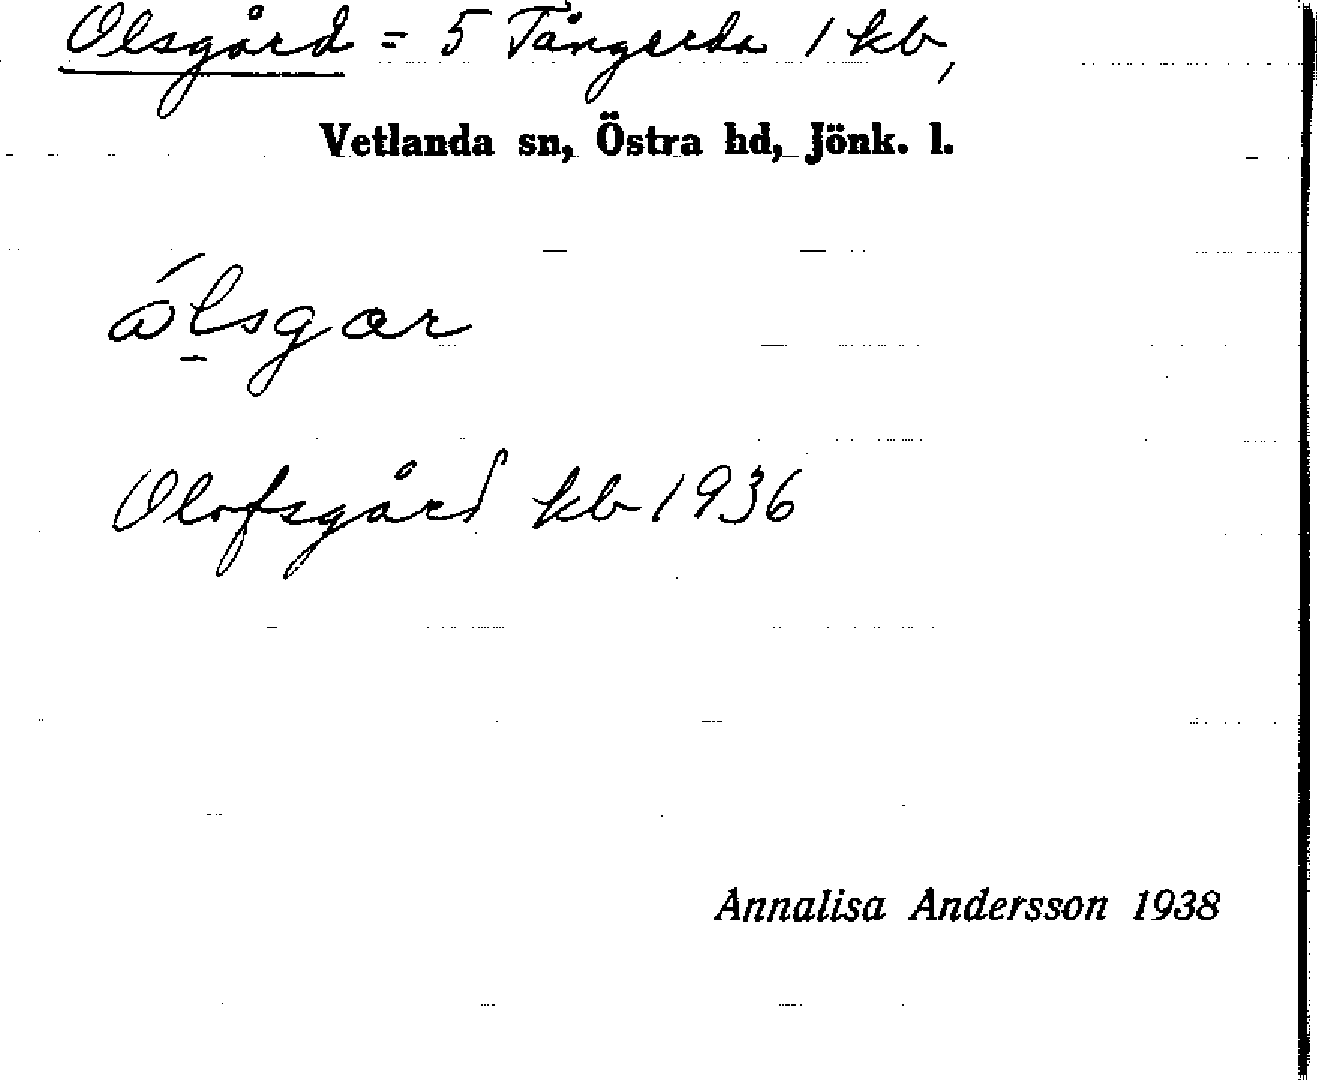 Olsgård = 5 Tångerda 1 kb,
Vetlanda sn, Östra hd, Jönk. l.
ól̠sgar
Olofsgård kb 1936
Annalisa Andersson 1938